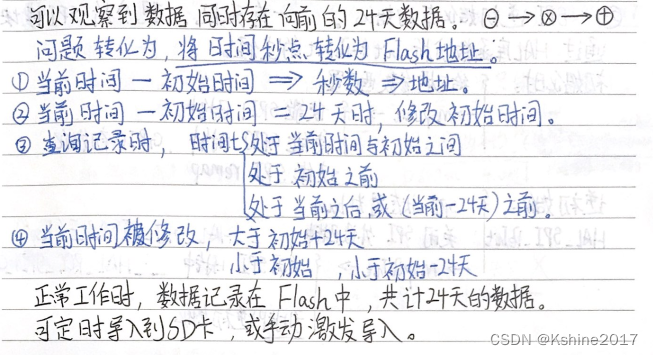 可以观察到数据同时存在向前的24天数据。 ⊖→⊗→⊕
问题转化为,将日时间秒点转化为Flash地址。
① 当前时间 — 初始时间 ⇒ 秒数 ⇒ 地址。
② 当前时间 — 初始时间 = 24天时,修改初始时间。
③ 查询记录时, 时间处于当前时间与初始之间
处于 初始之前
处于 当前之后,或(当前-24天)之前。
④ 当前时间被修改, 大于初始+24天
小于初始 ,小于初始-24天
正常工作时,数据记录在 Flash中,共计24天的数据。
可定时导入到SD卡,或手动激发导入。
CSDN @Kshine2017